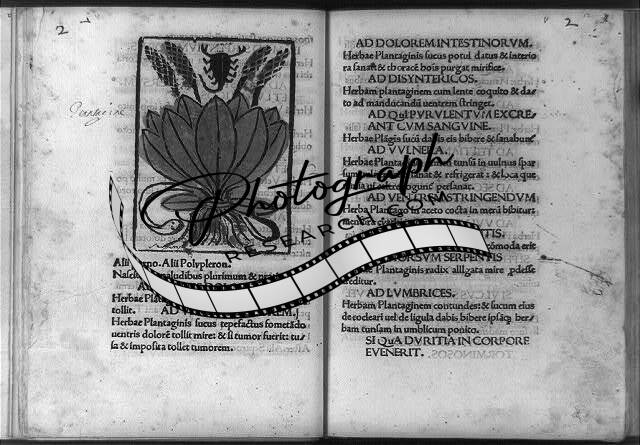 2
Plantagine
Alii Arno. Alii Polypleron.
Nascitur paludibus plurimum & pratis
AD
Herbae Plan
tollit. AD VENTREM.
Herbae Plantaginis sucus tepefactus fometado
uentris dolore tollit mire: & si tumor fuerit: tu
sa & imposita tollet tumorem.
2
AD DOLOREM INTESTINORVM.
Herbae Plantaginis sucus potui datus & interio
ra sanat & thorace bois purgat mirifice.
AD DISYNTERICOS.
Herbam plantaginem cum lente coquito & da
to ad manducandū uentrem stringet.
AD QuI PVRVLENTVM EXCRE
ANT CVM SANGVINE.
Herbae Plagis sucū dabis eis bibere & sanabunt
AD VVLNERA.
Herbae Planta tunsū in uulnus spar
sum sanat & refrigerat: & loca que
persanat.
AD VENTREM STRINGENDVM
Herba Plantago in aceto cocta in meru bibitur:
cōmoda erit
MORSVM SERPENTIS
Herbae Plantaginis radix alligata mire pdesse
creditur.
AD LVMBRICES.
Herbam Plantaginem contundes: & sucum eius
de cocleari uel de ligula dabis bibere ipsaq; her
bam tunsam in umblicum ponito.
SI QuA DVRITIA IN CORPORE
EVENERIT.
Photograph
RESEARCH.COM